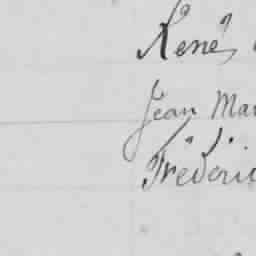 René
Jean Mar
Fréderic